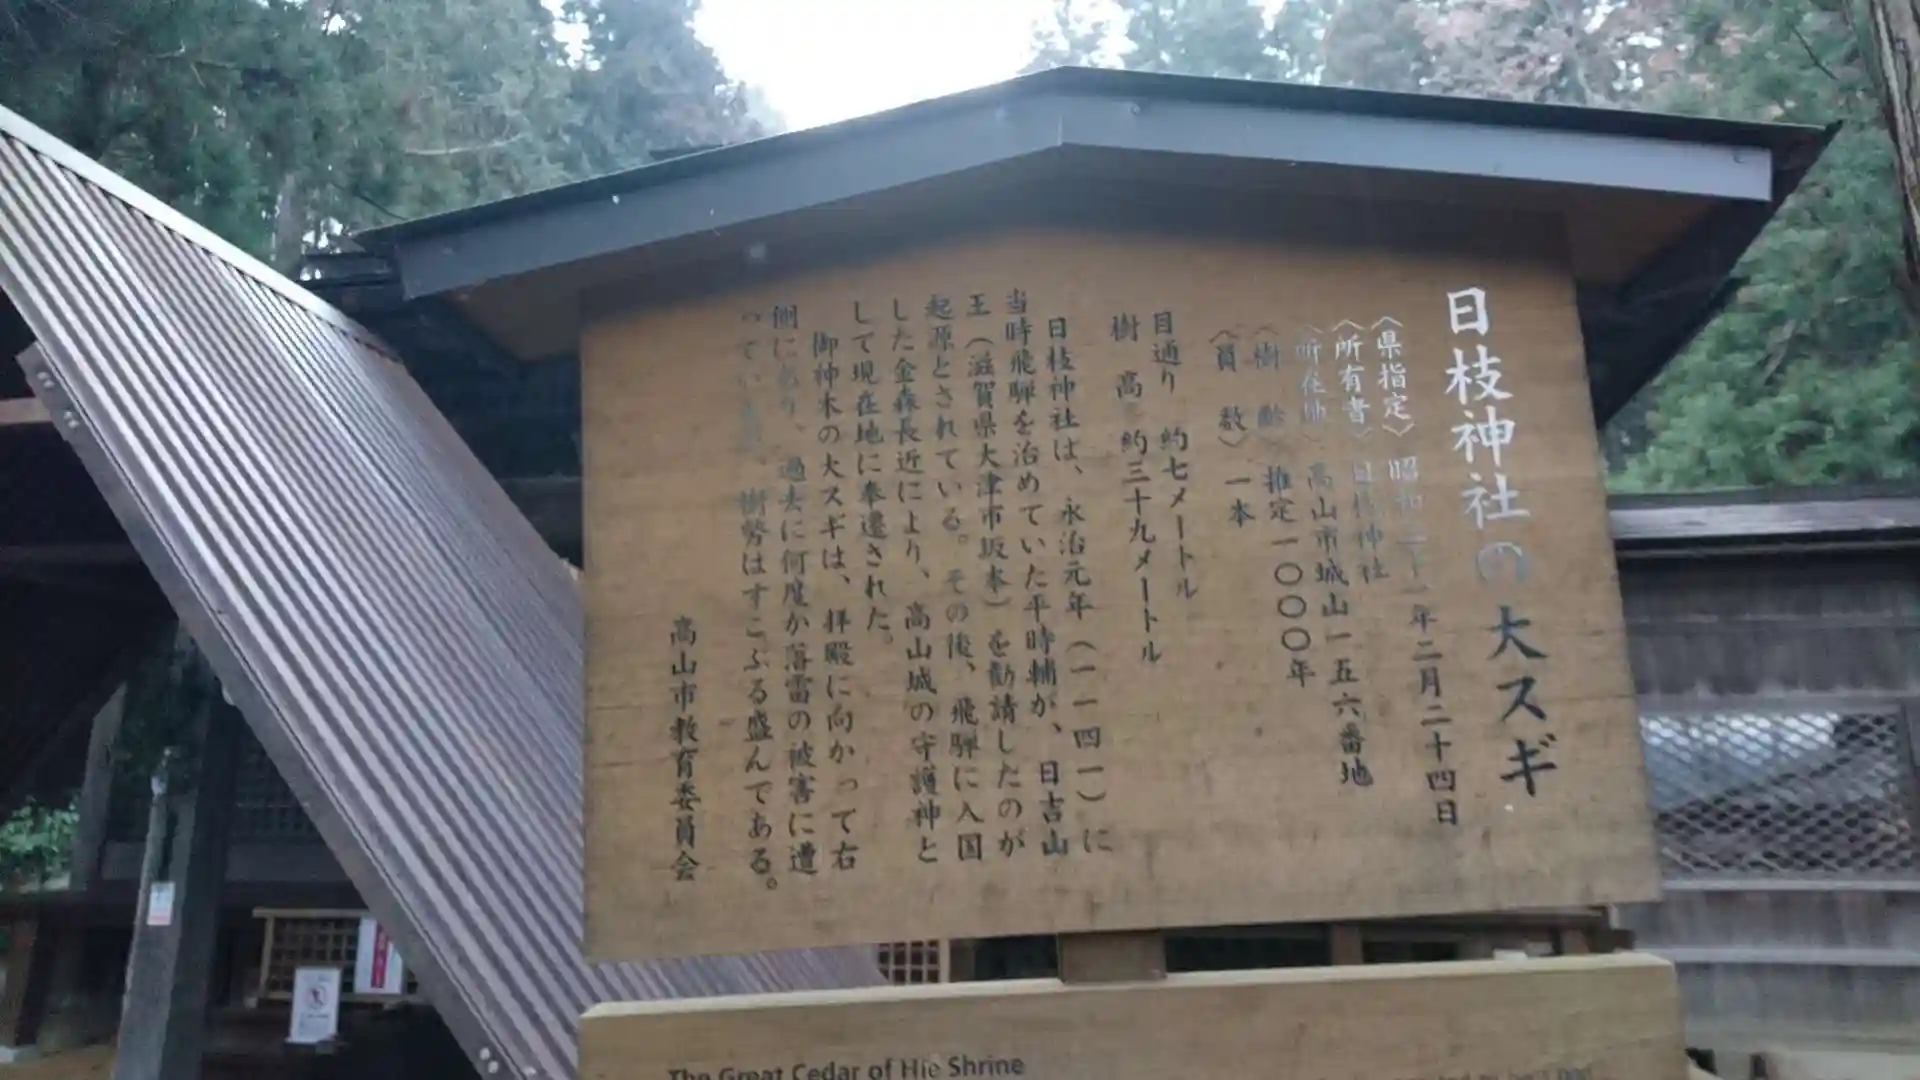 日枝神社の大スギ
〈県指定〉 昭和三十一年二月二十四日
〈所有者〉 日枝神社
〈所在地〉 高山市城山一五六番地
〈樹 齢〉 推定一〇〇〇年
〈員 数〉 一本
目通り 約七メートル
樹 高 約三十九メートル
日枝神社は、永治元年（一一四一）に
当時飛騨を治めていた平時輔が、日吉山
王（滋賀県大津市坂本）を勧請したのが
起源とされている。その後、飛騨に入国
した金森長近により、高山城の守護神と
して現在地に奉遷された。
御神木の大スギは、拝殿に向かって右
側にあり、過去に何度か落雷の被害に遭
っているが、樹勢はすこぶる盛んである。
高山市教育委員会
The Great Cedar of Hie Shrine